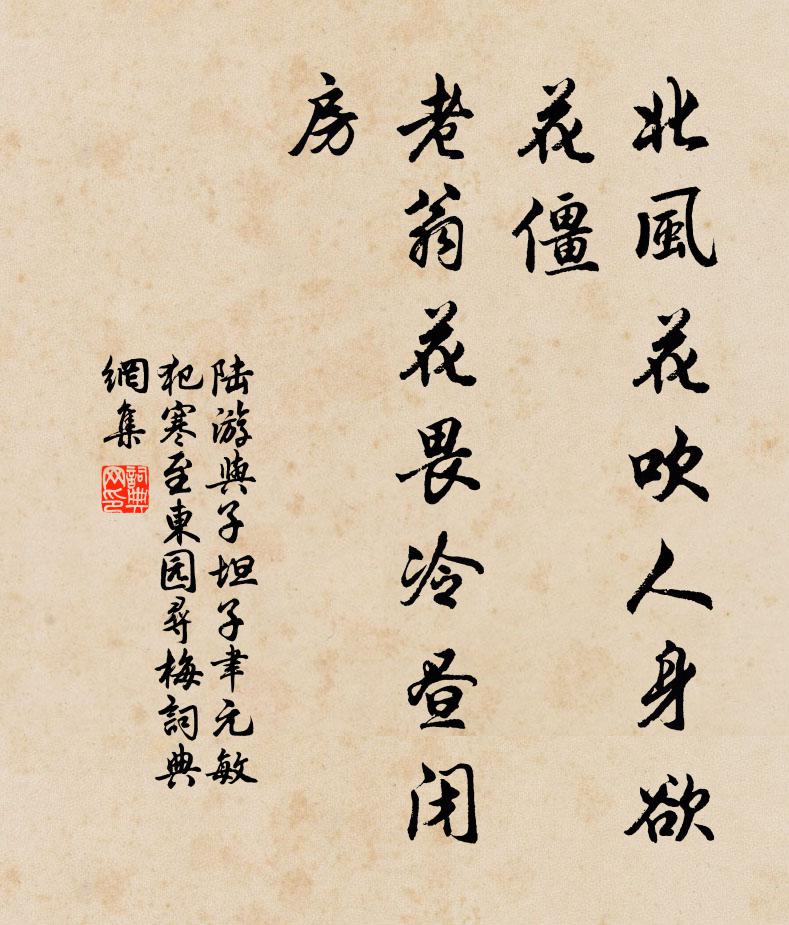 北風花吹人身欲
花僵
老翁花畏冷昼闭
房
陆游與子坦子聿元敏
犯寒至東园尋梅詞典
網集
詞典
网印